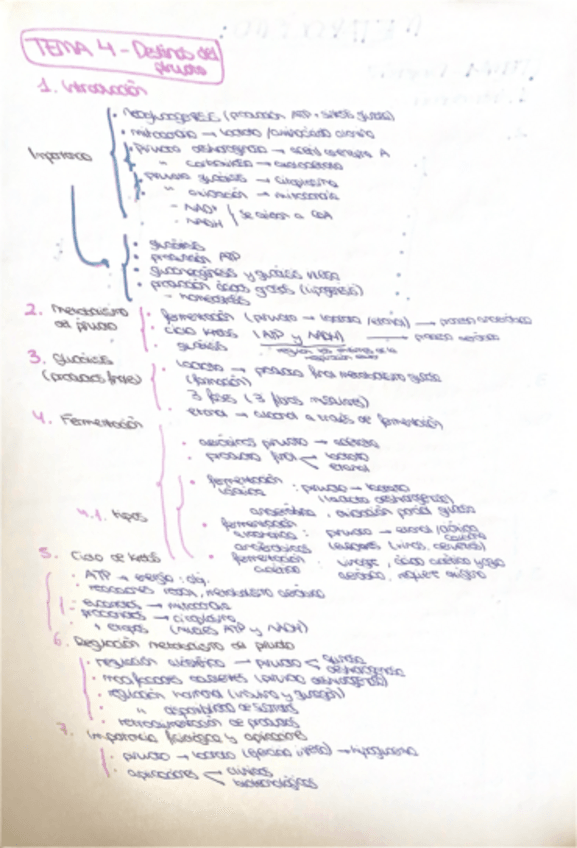 TEMA 4 - Destinos del
piruvato
1. Introducción
Importancia
· Neoglucogénesis (producción ATP + síntesis glucosa)
· mitocondria → lactato /aminoácido alanina
· piruvato deshidrogenasa → acetil coenzima A
" carboxilasa → oxalacetato
· piruvato glucólisis → citoplasma
" oxidación → mitocondria
- NAD+
- NADH
· glucólisis
· producción ATP
· gluconeogénesis y glucólisis inversa
· producción ácidos grasos (lipogénesis)
- homeostasis
2. Metabolismo
del piruvato
· fermentación (piruvato → lactato /etanol) → proceso anaeróbico
· ciclo Krebs (ATP y NADH) → proceso aeróbico
· glucólisis
3. Glucólisis
(productos finales)
· lactato → producto final metabolismo glucosa
(formación)
3 fases (3 fibras musculares)
· etanol → alcohol a través de fermentación
4. Fermentación
· aeróbicos piruvato →
· producto final < lactato
etanol
4.1. tipos
· fermentación
láctica : piruvato → lactato
(lactato deshidrogenasa)
anaeróbica, oxidación parcial glucosa
· fermentación
alcohólica : piruvato → etanol
anaeróbicos levaduras (vinos, cervezas)
· fermentación
acética : vinagre, ácido acético
aeróbico, requiere oxígeno
5. Ciclo de Krebs
· ATP → energía
· reacciones redox, metabolismo aeróbico
· eucariotas → mitocondria
procariotas → citoplasma
· etapas (moléculas ATP y NADH)
6. Regulación metabolismo del piruvato
· regulación alostérica → piruvato < quinasa
deshidrogenasa
· modificaciones covalentes (piruvato deshidrogenasa)
· regulación hormonal (insulina y glucagón)
" disponibilidad de sustratos
· retroalimentación de productos
7. Importancia fisiológica y aplicaciones
· piruvato → lactato (ejercicio intenso) →
· aplicaciones < clínicas
biotecnológicas